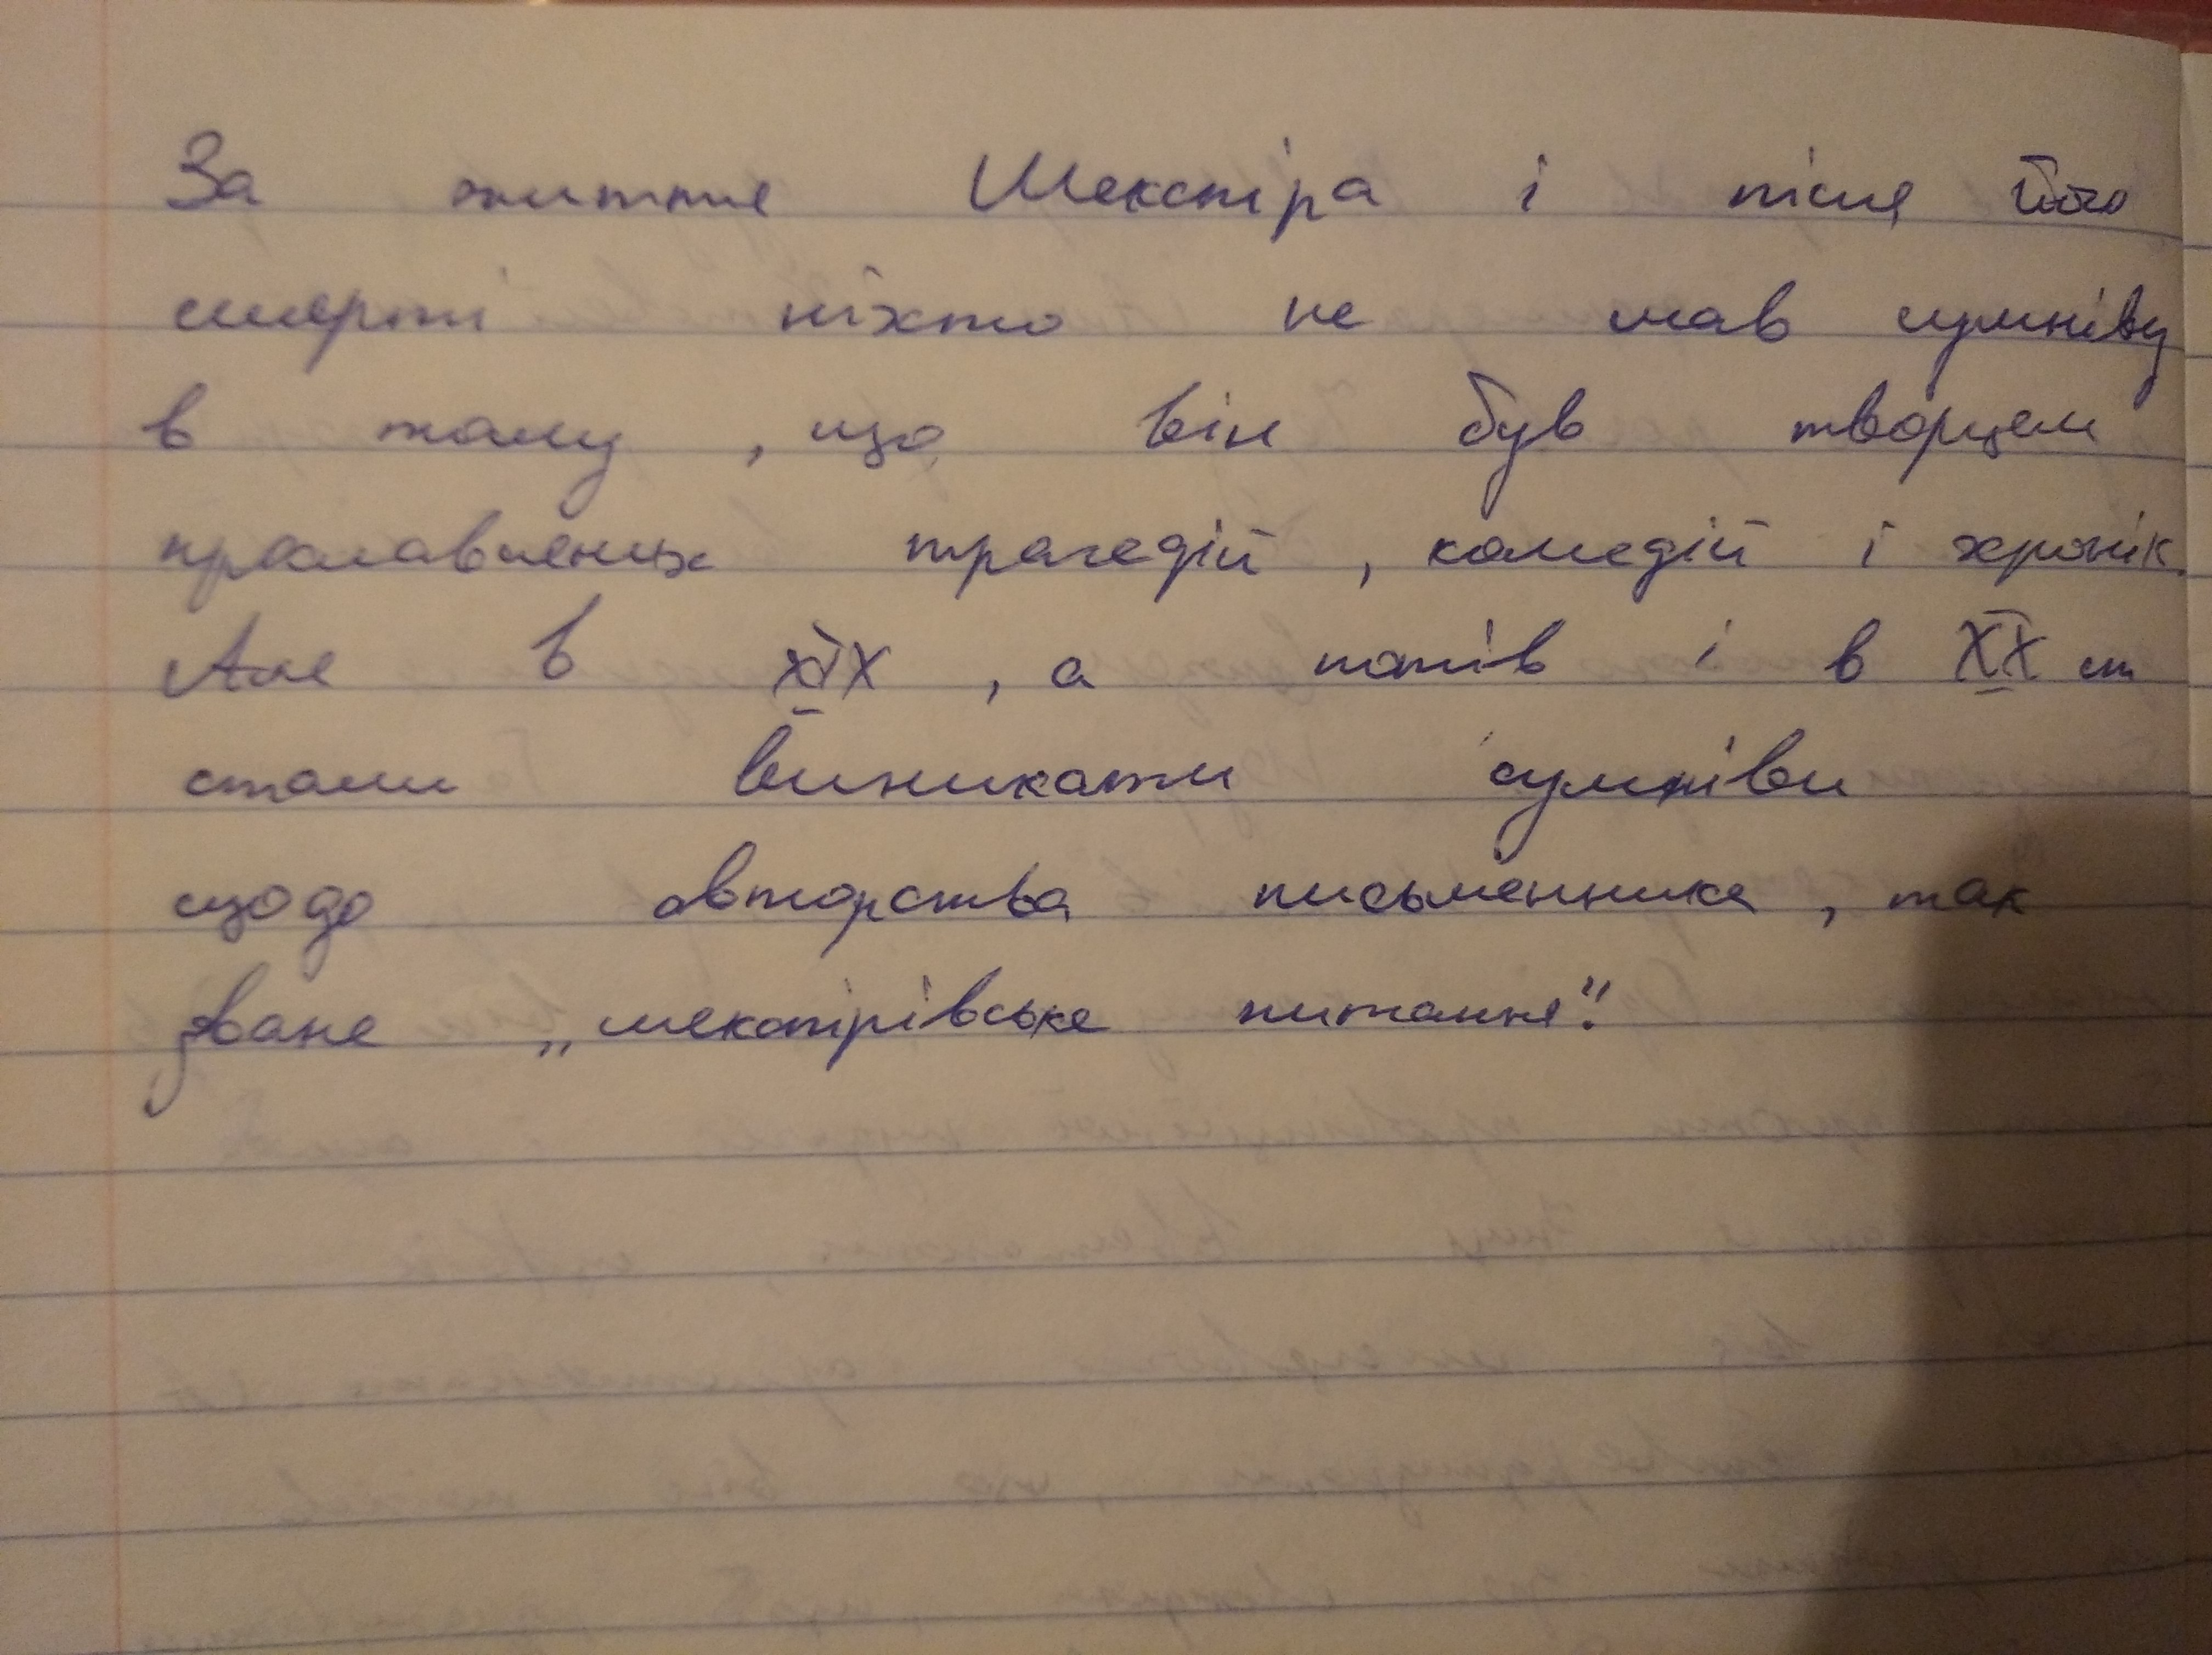 За життя Шекспіра і після його
смерті ніхто не мав сумніву
в тому, що він був творцем
прославлених трагедій, комедій і хронік.
Але в XIX, а потів і в XX ст
стали виникати сумніви
щодо авторства письменника, так
зване „шекспірівське питання".